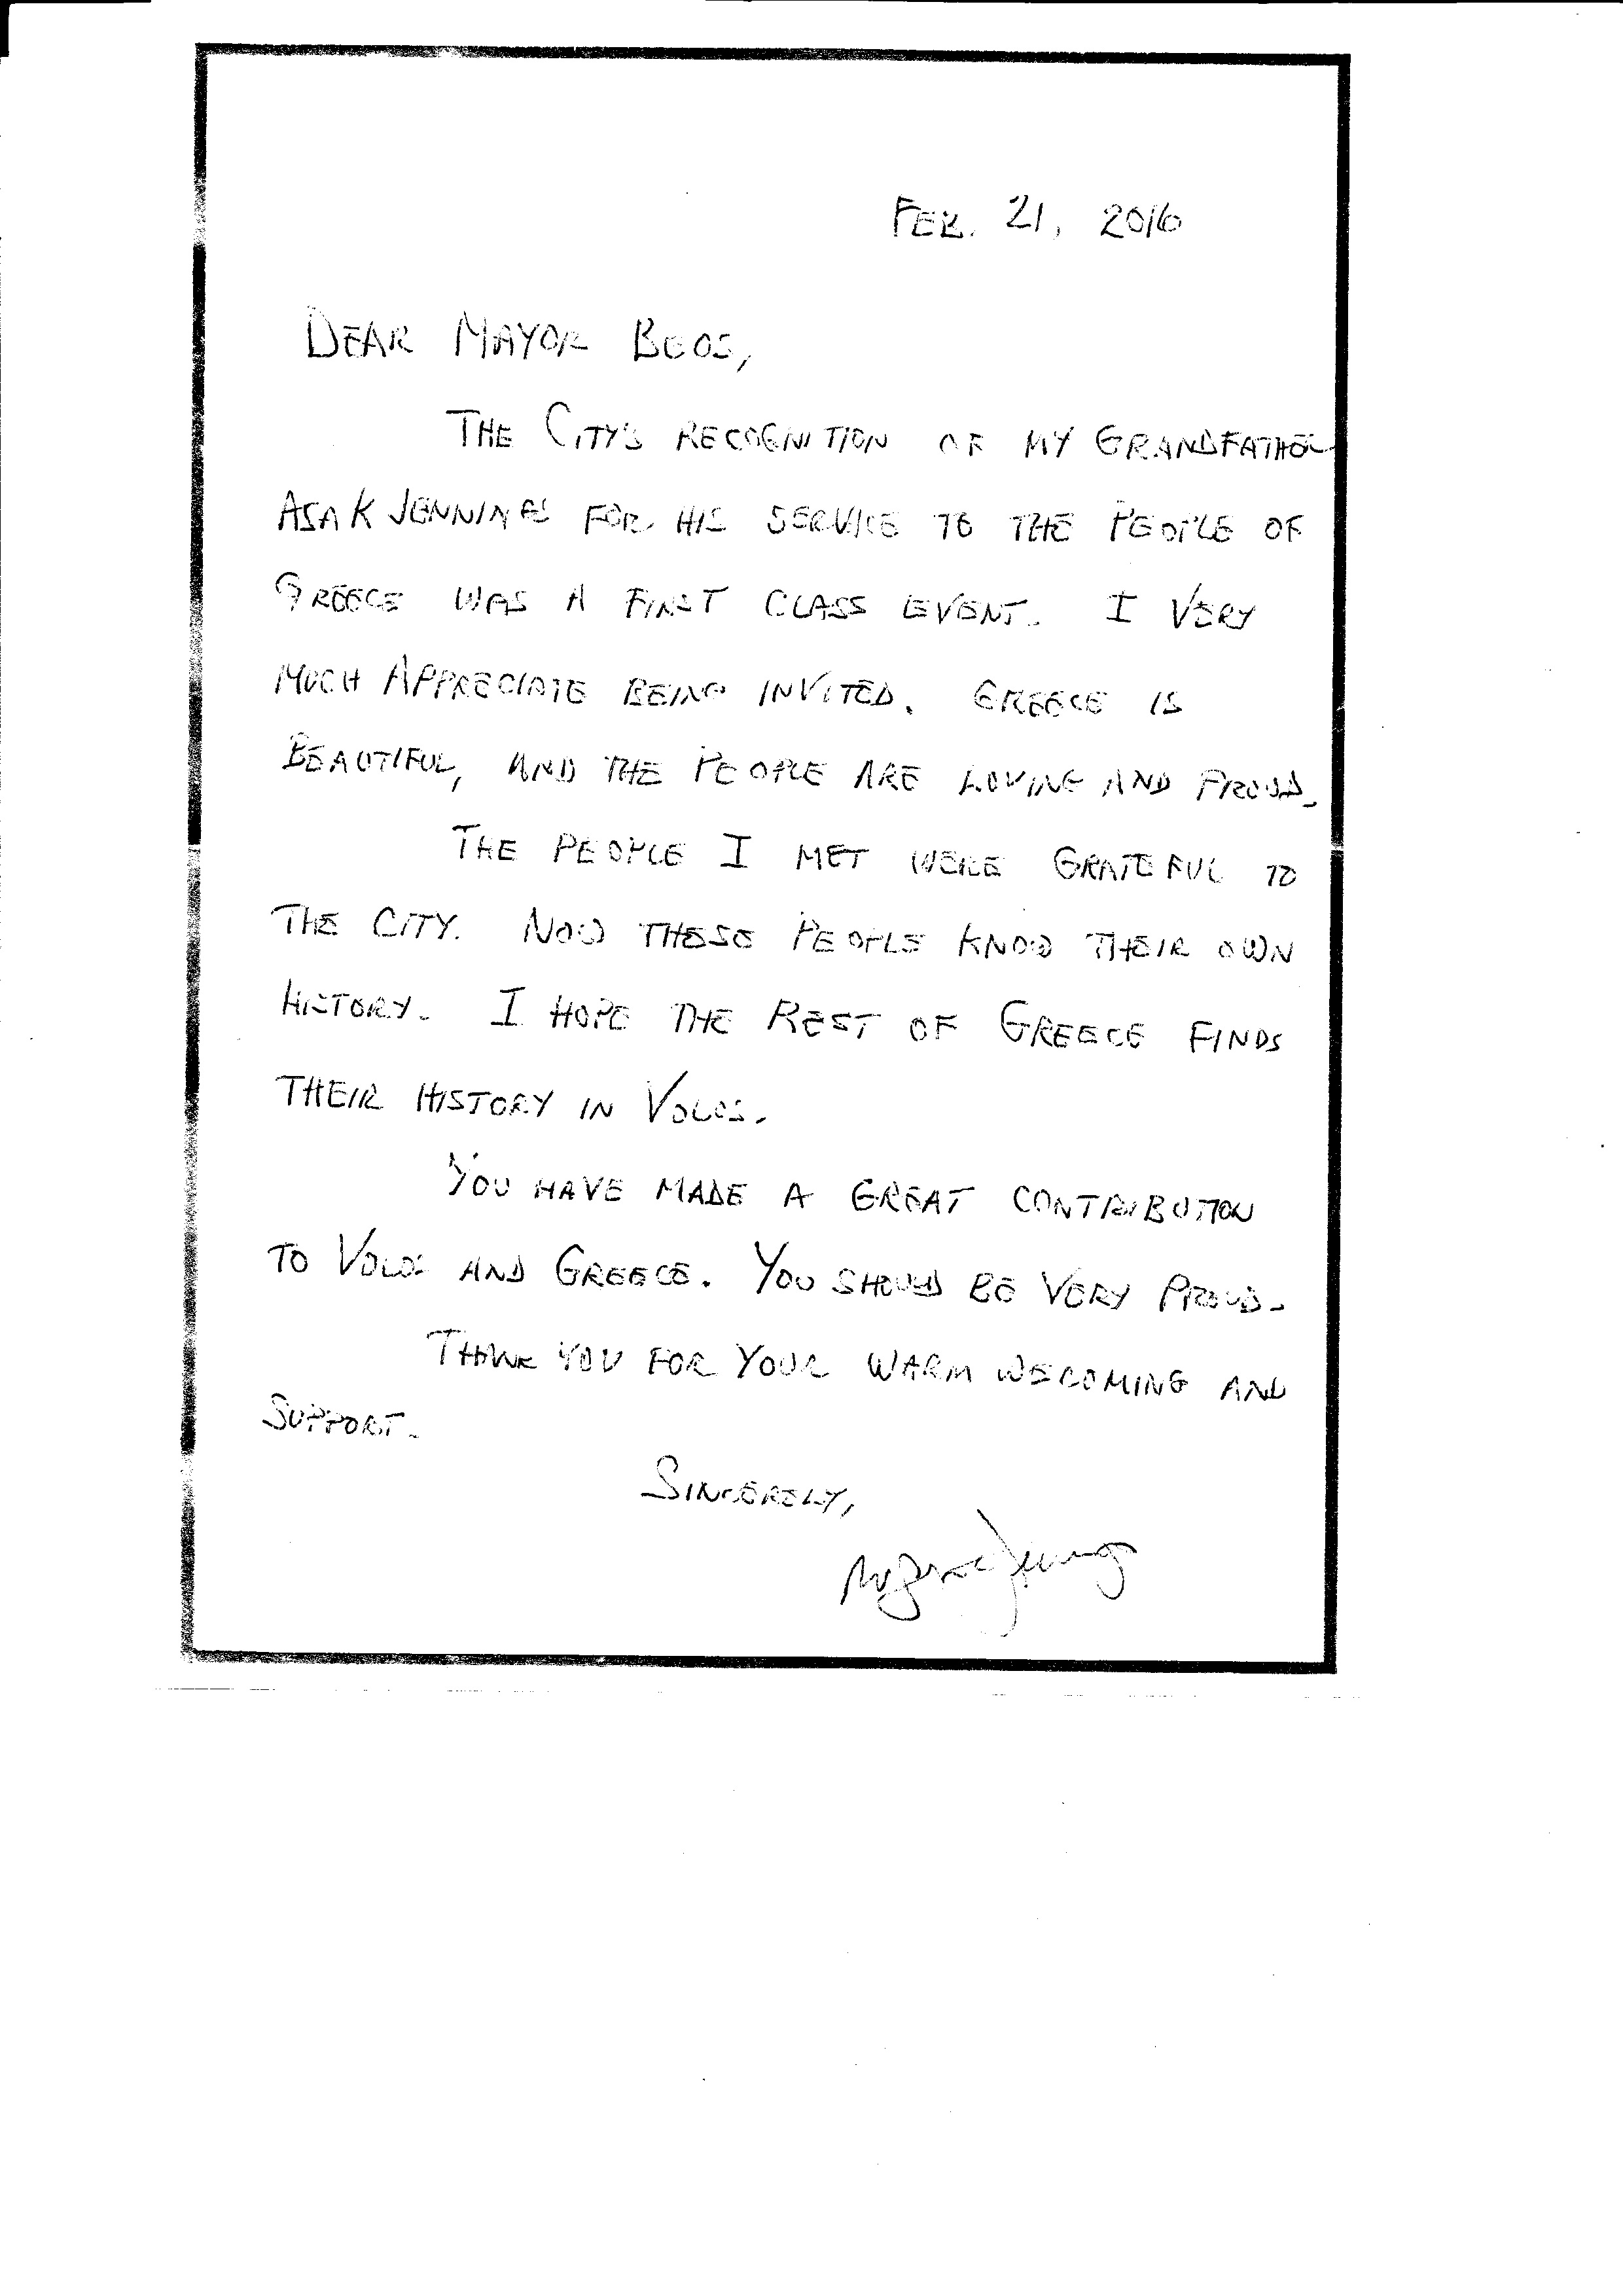 FEB. 21, 2016
DEAR MAYOR BEOS,
THE CITY'S RECOGNITION OF MY GRANDFATHER
ASA K JENNINGS FOR HIS SERVICE TO THE PEOPLE OF
GREECE WAS A FIRST CLASS EVENT. I VERY
MUCH APPRECIATE BEING INVITED. GREECE IS
BEAUTIFUL, AND THE PEOPLE ARE LOVING AND PROUD.
THE PEOPLE I MET WERE GRATEFUL TO
THE CITY. NOW THESE PEOPLE KNOW THEIR OWN
HISTORY. I HOPE THE REST OF GREECE FINDS
THEIR HISTORY IN VOLOS.
YOU HAVE MADE A GREAT CONTRIBUTION
TO VOLOS AND GREECE. YOU SHOULD BE VERY PROUD.
THANK YOU FOR YOUR WARM WELCOMING AND
SUPPORT.
SINCERELY,
Jennings